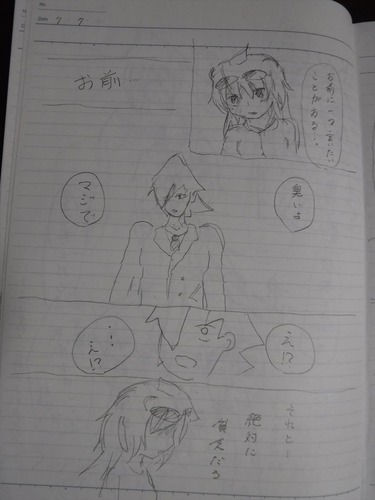 No.
Date 7・7
お前に一つ言いたい
ことがある…。
お前…
臭いよ
マジで
え!?
…
え!?
それと…
絶対に
貧乏だろ